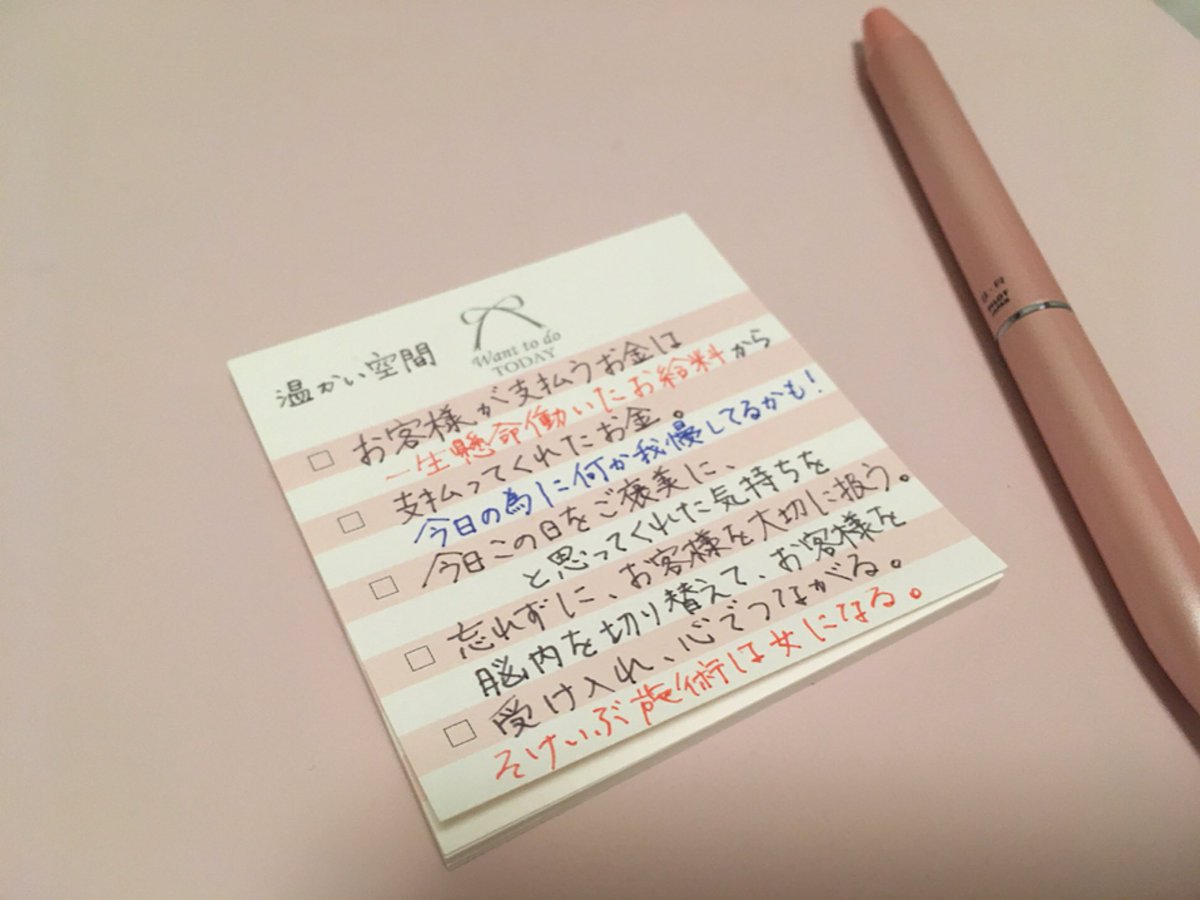 温かい空間
Want to do
TODAY
お客様が支払うお金は
一生懸命働いたお給料から
支払ってくれたお金。
今日の為に何か我慢してるかも!
今日この日をご褒美に、
と思ってくれた気持ちを
忘れずに、お客様を大切に扱う。
脳内を切り替えて、お客様を
受け入れ、心でつながる。
そけいぶ施術は女になる。
PILOT
JAPAN